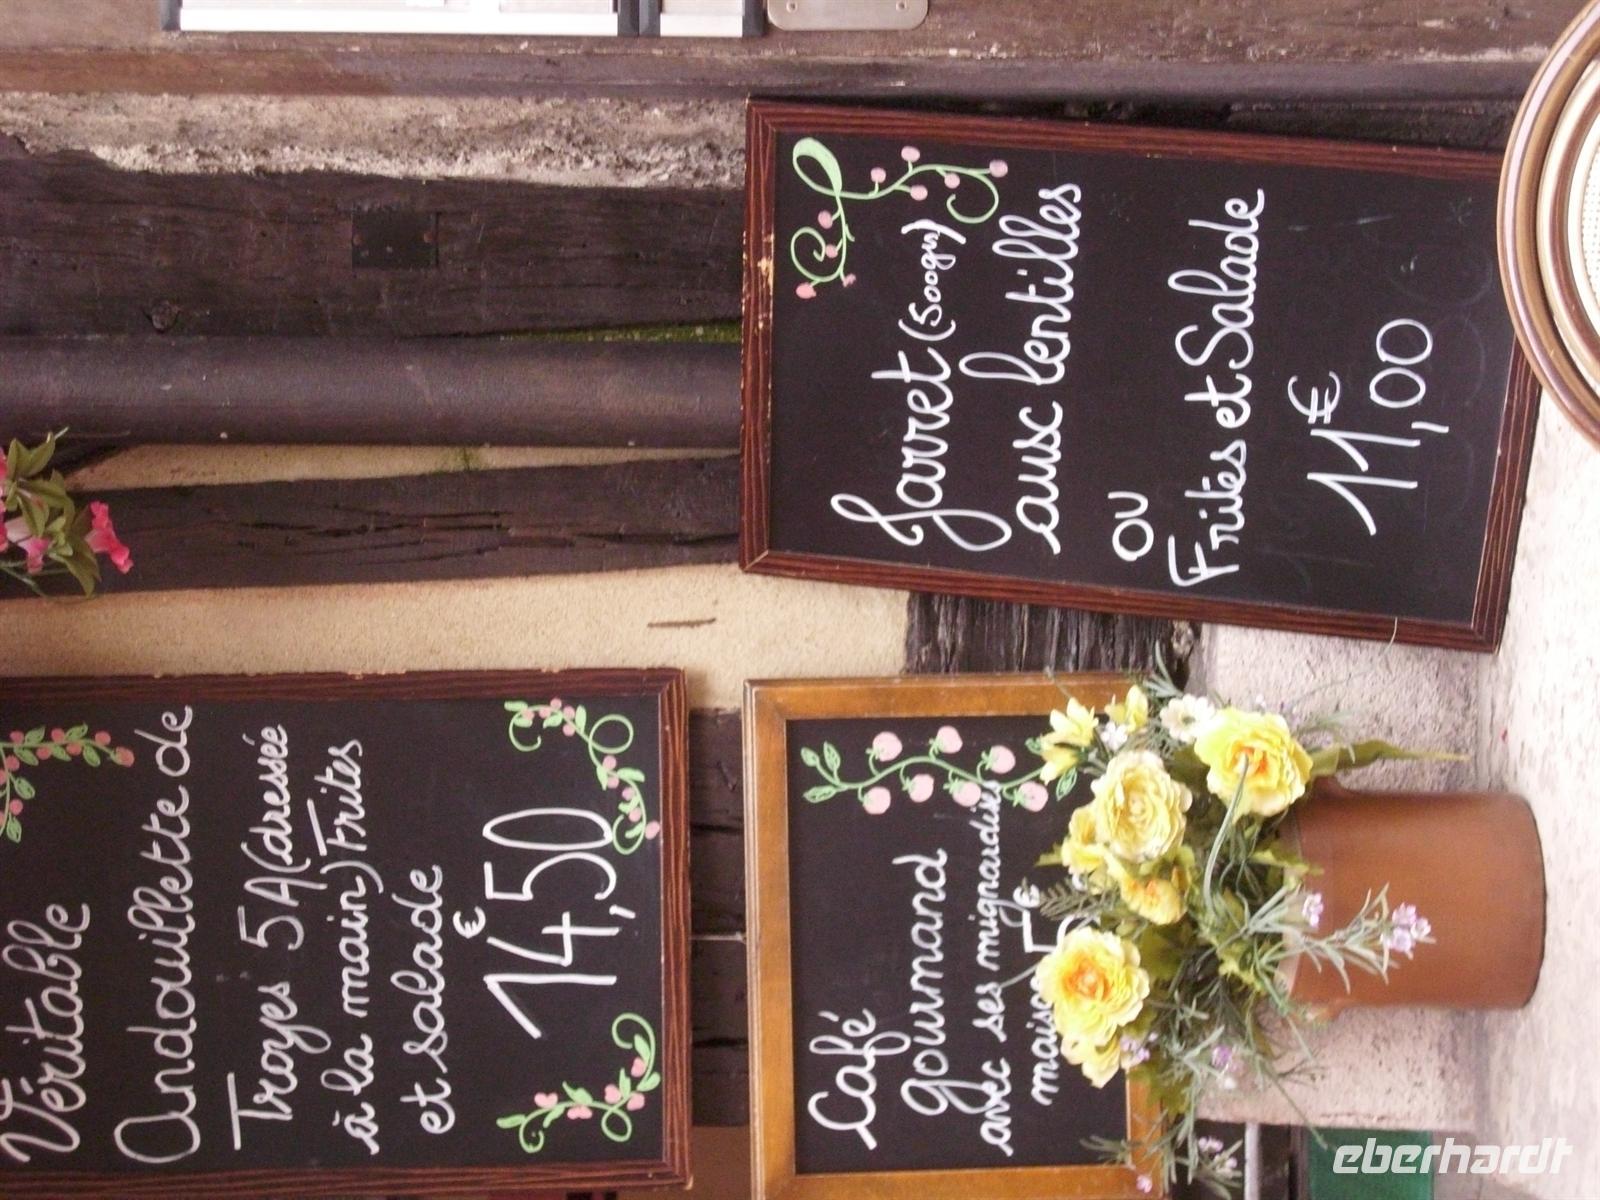 Véritable
Andouillette de
Troyes 5A (dressée
à la main) Frites
et salade
€
14,50
Café
gourmand
avec ses mignardises
Jarret (500grs)
aux lentilles
OU
Frites et Salade
€
11,00
eberhardt